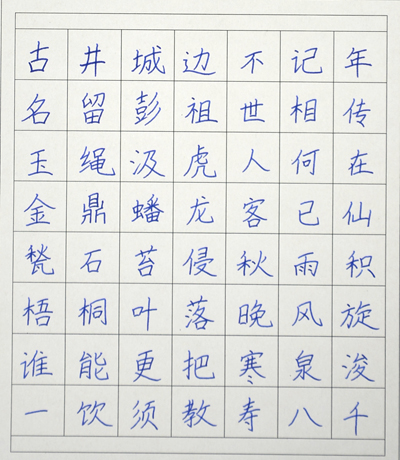 古井城边不记年
名留彭祖世相传
玉绳汲虎人何在
金鼎蟠龙客已仙
甃石苔侵秋雨积
梧桐叶落晚风旋
谁能更把寒泉浚
一饮须教寿八千